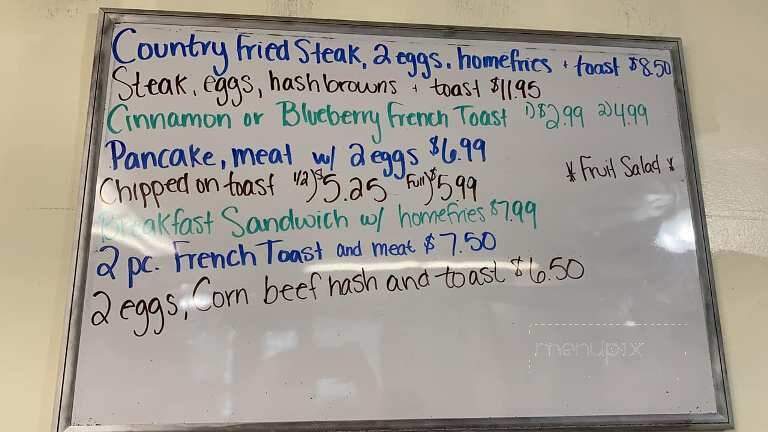 Country fried Steak, 2 eggs, homefries + toast $8.50
Steak, eggs, hashbrowns + toast $11.95
Cinnamon or Blueberry french Toast 1) $2.99 2) 4.99
Pancake, meat w/ 2 eggs $6.99
* Fruit Salad *
Chipped on toast 1/2) $5.25 Full) $5.99
Breakfast Sandwich w/ homefries $7.99
2 pc. French Toast and meat $7.50
2 eggs, Corn beef hash and toast $6.50
menupix